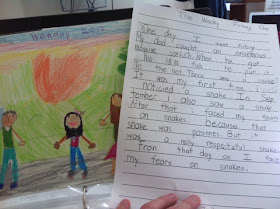 Wenday 2012
The Wacky Fishing Day
One day I went fishing
My dad caught an enormous
catfish. When he got
his
to put
in the net. There was a snake.
It was my first time I
noticied a snake. In Sep
tember I also saw a snake.
After that I faced my fears
on snakes because that
snake was poisines. But it
was a really respectful snake.
From that day on I face
my fears on snakes.